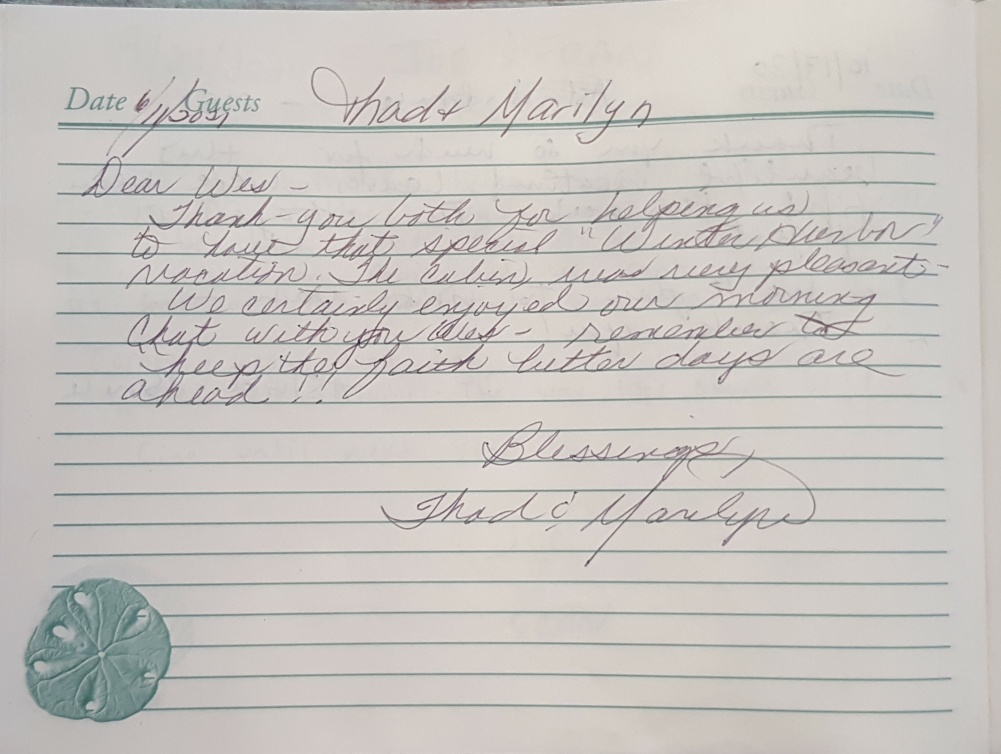 Date 6/1/2021 Guests Thad & Marilyn
Dear Wes -
Thank-you both for helping us
to have that special "Winter Harbor"
vacation. The cabin was very pleasant -
We certainly enjoyed our morning
Chat with you Wes - remember to
keep the faith better days are
ahead!!
Blessings,
Thad & Marilyn